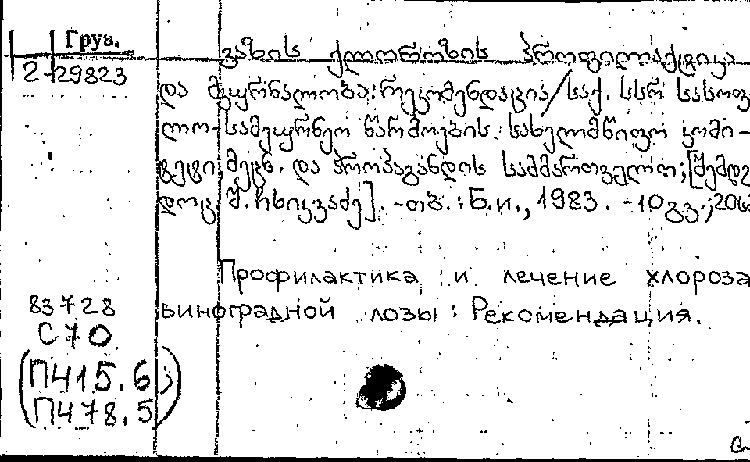 Груз.
2-29823
ვაზის ქლოროზის პროფილაქტიკა
და მკურნალობა: რეკომენდაცია/საქ. სსრ სასოფ
ლო-სამეურნეო წარმოების სახელმწიფო კომი-
ტეტი, მეცნ. და პროპაგანდის სამმართველო; [შემდგ
დოც. შ. ჩხიკვაძე]. - თბ. : Б.и., 1983. - 10 გვ.; 20
Профилактика и лечение хлороза
виноградной лозы: Рекомендация.
83728
С70
(П415.6
П478.5)